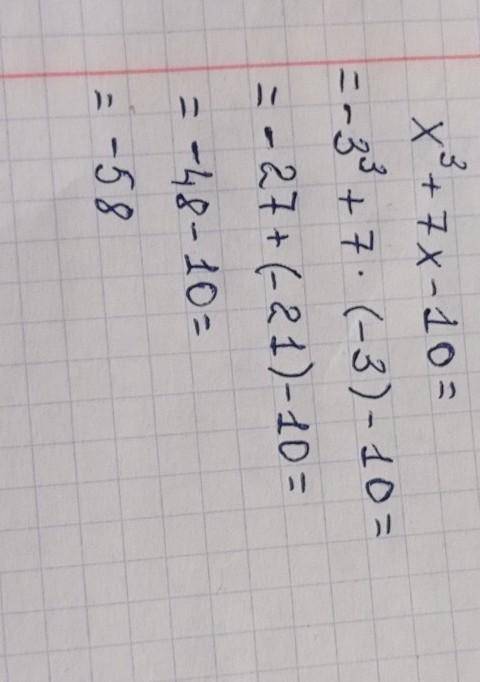 x³ + 7x - 10 =
= -3³ + 7 · (-3) - 10 =
= -27 + (-21) - 10 =
= -48 - 10 =
= -58